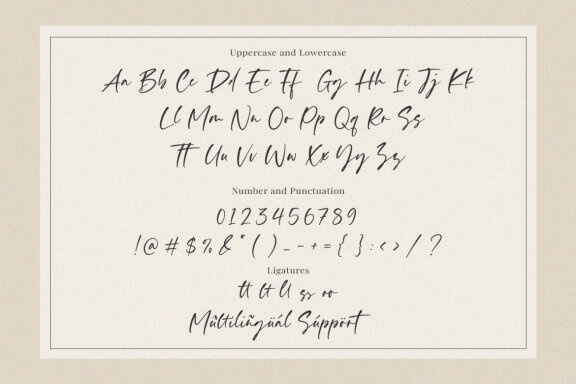 Uppercase and Lowercase
Aa Bb Cc Dd Ee Ff Gg Hh Ii Jj Kk
Ll Mm Nn Oo Pp Qq Rr Ss
Tt Uu Vv Ww Xx Yy Zz
Number and Punctuation
0123456789
!@#$%&*()_-+={}:<>/?
Ligatures
tt lt ll ss oo
Mûltilingüál Súppört